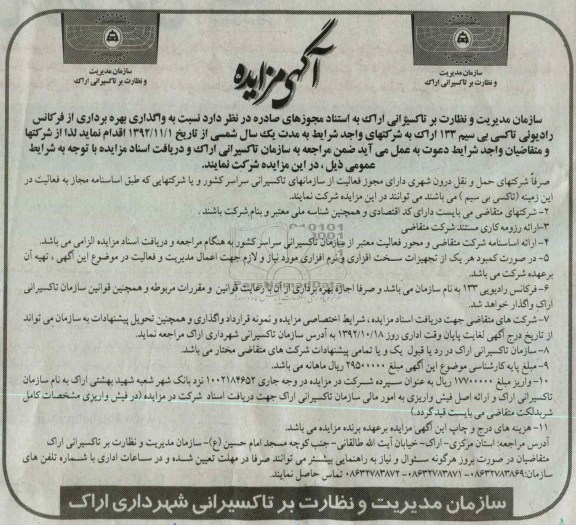 سازمان مدیریت
و نظارت بر تاکسیرانی اراک
آگهی مزایده
سازمان مدیریت
و نظارت بر تاکسیرانی اراک
سازمان مدیریت و نظارت بر تاکسیرانی اراک به استناد مجوزهای صادره در نظر دارد نسبت به واگذاری بهره برداری از فرکانس
رادیوئی تاکسی بی سیم ۱۳۳ اراک به شرکتهای واجد شرایط به مدت یک سال شمسی از تاریخ ۱۳۹۲/۱۱/۱ اقدام نماید لذا از شرکتها
و متقاضیان واجد شرایط دعوت به عمل می آید ضمن مراجعه به سازمان تاکسیرانی اراک و دریافت اسناد مزایده با توجه به شرایط
عمومی ذیل ، در این مزایده شرکت نمایند.
صرفاً شرکتهای حمل و نقل درون شهری دارای مجوز فعالیت از سازمانهای تاکسیرانی سراسر کشور و یا شرکتهایی که طبق اساسنامه مجاز به فعالیت در
این زمینه (تاکسی بی سیم ) می باشند می توانند در این مزایده شرکت نمایند.
۲- شرکتهای متقاضی می بایست دارای کد اقتصادی و همچنین شناسه ملی معتبر و بنام شرکت باشند .
۳-ارائه رزومه کاری مستند شرکت متقاضی
۴- ارائه اساسنامه شرکت متقاضی و مجوز فعالیت معتبر از سازمان تاکسیرانی سراسر کشور به هنگام مراجعه و دریافت اسناد مزایده الزامی می باشد.
۵- در صورت کمبود هر یک از تجهیزات سخت افزاری و نرم افزاری مورد نیاز و لازم جهت اعمال مدیریت و فعالیت در موضوع این آگهی ، تهیه آن
برعهده شرکت می باشد.
۶- فرکانس رادیویی ۱۳۳ به نام سازمان می باشد و صرفا اجازه بهره برداری از آن با رعایت قوانین و مقررات مربوطه و همچنین قوانین سازمان تاکسیرانی
اراک واگذار خواهد شد.
۷- شرکت های متقاضی جهت دریافت اسناد مزایده ، شرایط اختصاصی مزایده و نمونه قرارداد واگذاری و همچنین تحویل پیشنهادات به سازمان می تواند
از تاریخ درج آگهی لغایت پایان وقت اداری روز ۱۳۹۲/۱۰/۱۸ به آدرس سازمان تاکسیرانی شهرداری اراک مراجعه نماید.
۸- سازمان تاکسیرانی اراک در رد یا قبول یک و یا تمامی پیشنهادات شرکت های متقاضی مختار می باشد.
۹- مبلغ پایه کارشناسی موضوع این آگهی مبلغ ۲۹۵۰۰۰۰۰ ریال ماهانه می باشد.
۱۰- واریز مبلغ ۱۷۷۰۰۰۰۰ ریال به عنوان سپرده شرکت در مزایده در وجه جاری ۱۰۰۲۱۸۴۶۵۲ نزد بانک شهر شعبه شهید بهشتی اراک به نام سازمان
تاکسیرانی اراک و ارائه اصل فیش واریزی به امور مالی سازمان تاکسیرانی اراک جهت دریافت اسناد شرکت در مزایده (در فیش واریزی مشخصات کامل
متقاضی می بایست قید گردد)
۱۱- هزینه های درج و چاپ این آگهی مزایده برعهده برنده مزایده می باشد.
آدرس مراجعه: استان مرکزی- اراک- خیابان آیت الله طالقانی- جنب کوچه مسجد امام حسین (ع)- سازمان مدیریت و نظارت بر تاکسیرانی اراک
متقاضیان در صورت بروز هرگونه سئوال و نیاز به راهنمایی بیشتر می توانند صرفا در مهلت تعیین شده و در ساعات اداری با شماره تلفن های
سازمان:۰۸۶۳۲۷۸۳۸۶۹-۰۸۶۳۲۷۸۳۸۷۱-۰۸۶۳۲۷۸۳۸۷۲ تماس حاصل نمایند.
سازمان مدیریت و نظارت بر تاکسیرانی شهرداری اراک